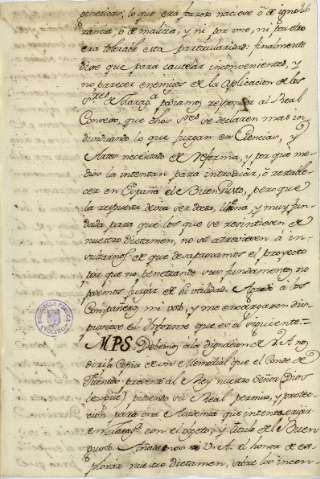 genericas, lo que era forzoso naciese ò de igno
rancia, ò de malicia, y ni por uno, ni por otro
era tolerable esta particularidad: finalmente
dixe que para cautelar inconvenientes, y
no parecer enemigos de la Aplicacion de los
Sres de Zaragª podiamos responder al Real
Consejo, que dhos Sres se declaren mas in
dividuando lo que juzgan en Ciencias, y
Artes necesitado de Reforma, y por que me
dios la intentan para introducir, ò restable
cer en España el Buen Gusto, pero que
la respuesta devia ser docta, llana, y muy fun
dada, para que los que se resintiesen de
nuestro dictamen, no se atreviesen à in
sultarnos de que desaprovamos el proyecto
por que no penetrando sus fundamentos, no
podemos juzgar de su utilidad. Agradò à los
Compañeros mi voto, y me encargaron dis
pusiese el Informe que es el siguiente
M.P.S. Devemos a la dignacion de V.A. nos
dirija Copia de un Memorial que el Conde de
Fuentes presentò al Rey nuestro Señor (Dios
le guarde) pidiendo su Real permiso, y protec
cion para una Academia que intenta erigir
en Zaragª con el objeto, y titulo de el Buen
gusto. Añadiendo V.A. el honor de ex
plorar nuestro dictamen, sobre los incon